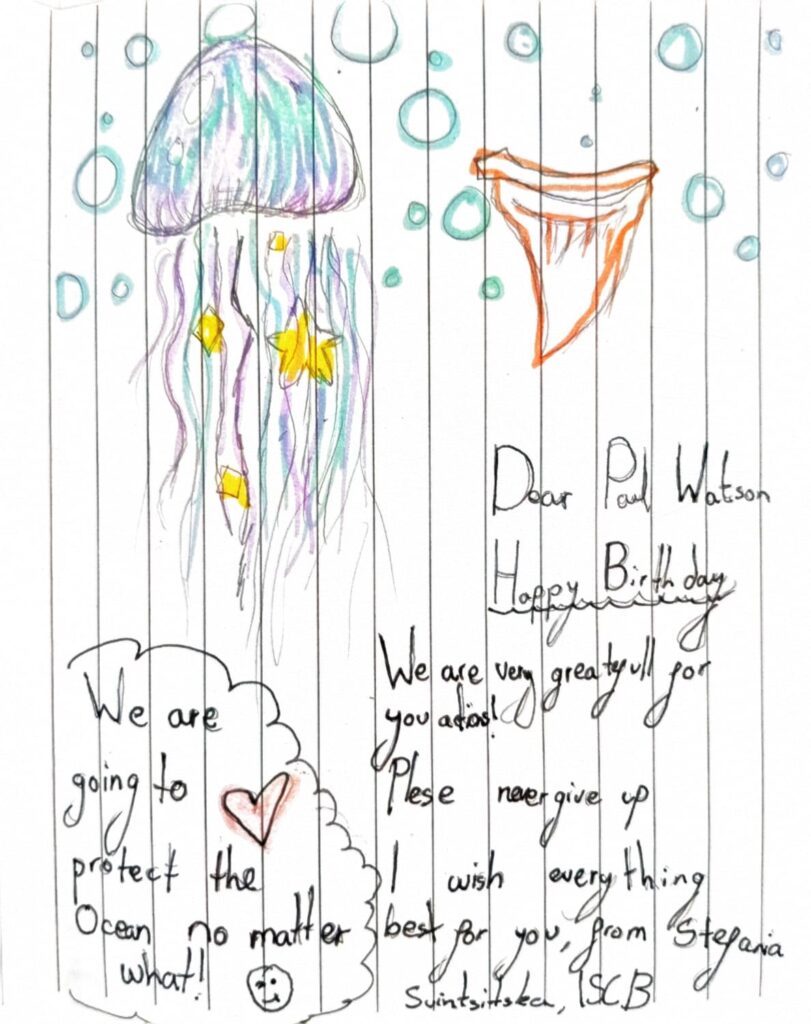 Dear Paul Watson
Happy Birthday
We are very greatyull for
you
Plese never give up
I wish everything
best for you, from Stefania
ISCB
We are
going to
protect the
Ocean no matter
what!